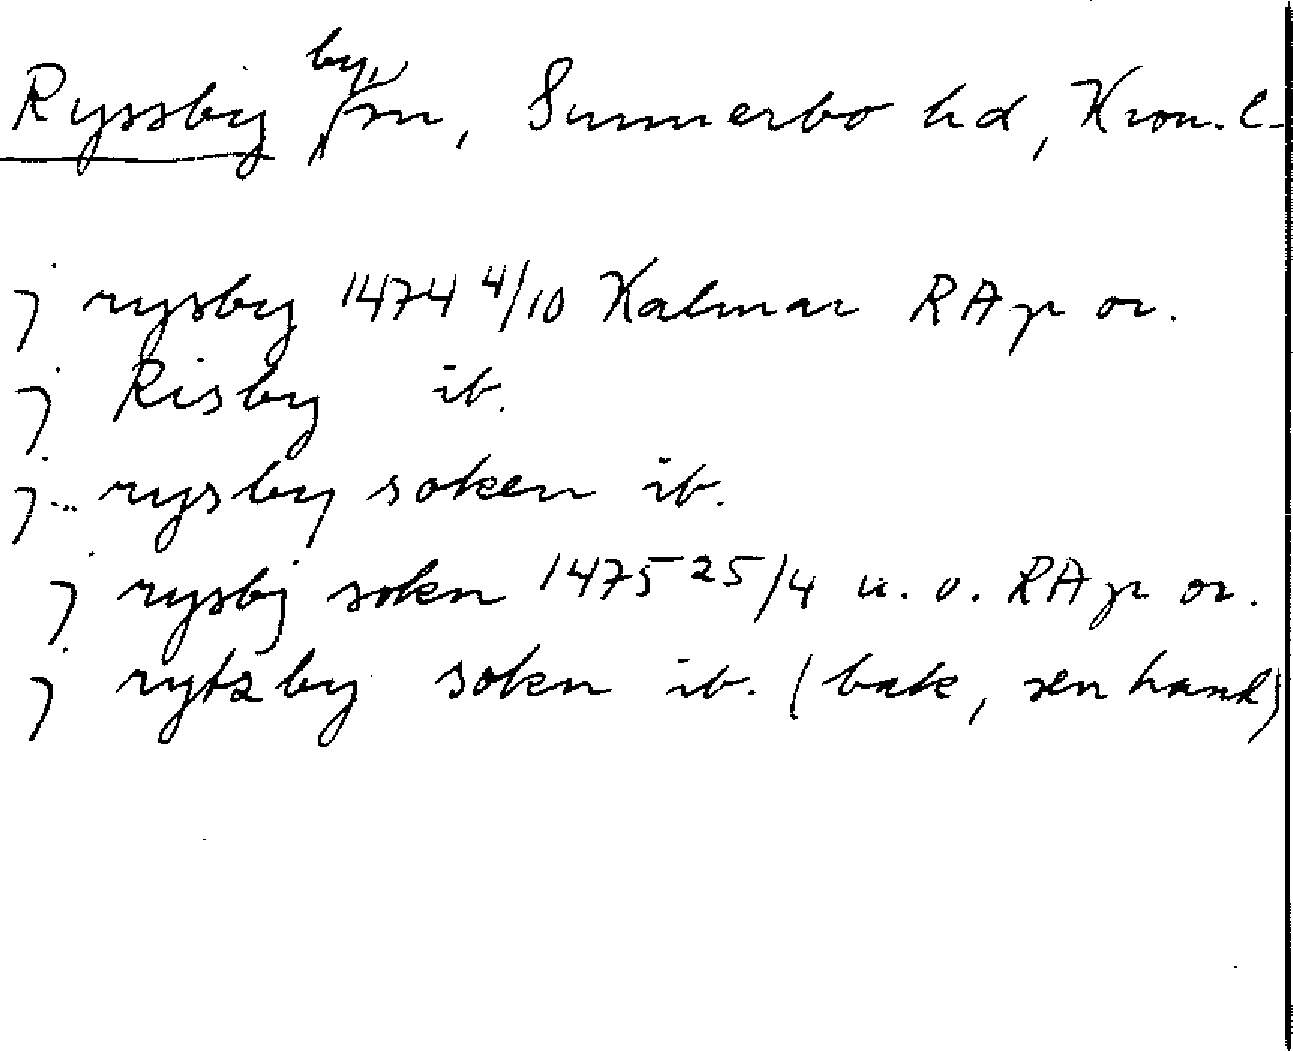 Ryssby by, sn, Sunnerbo hd, Kron. l.
j rysby 1474 4/10 Kalmar RAp or.
j Risby ib.
j .. rysby soken ib.
j rysbj sokn 1475 25/4 u. o. RAp or.
j rytzby sokn ib. (bak, sen hand)